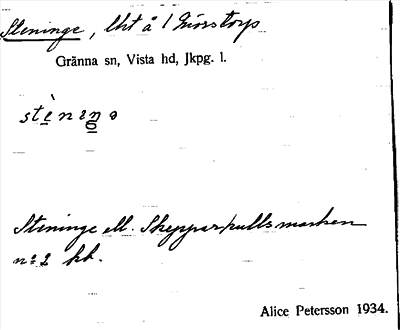 Steninge, lht å 1 Misstorp
Gränna sn, Vista hd, Jkpg. l.
stèninə
Steninge ell. Skepparpullsmarken
nº 2 kb.
Alice Petersson 1934.